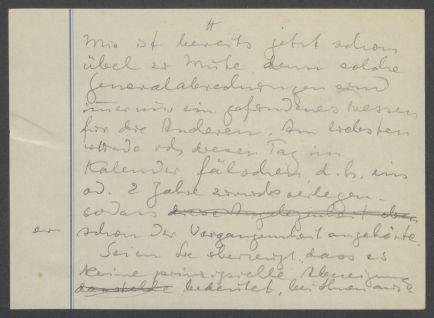 Mir ist bereits jetzt schon
übel zu Mute denn solche
Generalabrechnungen sind
immer nur ein gefundenes Fressen
für die Anderen. Am liebsten
würde ich diesen Tag im
Kalender fälschen d.h. ein
od. 2 Jahre zurückverlegen.
sodass diese Angelegenheit
er schon der Vergangenheit angehörte.
Seien Sie überzeugt dass es
keine prinzipielle Abneigung
darstellt bedeutet, bei Ihnen